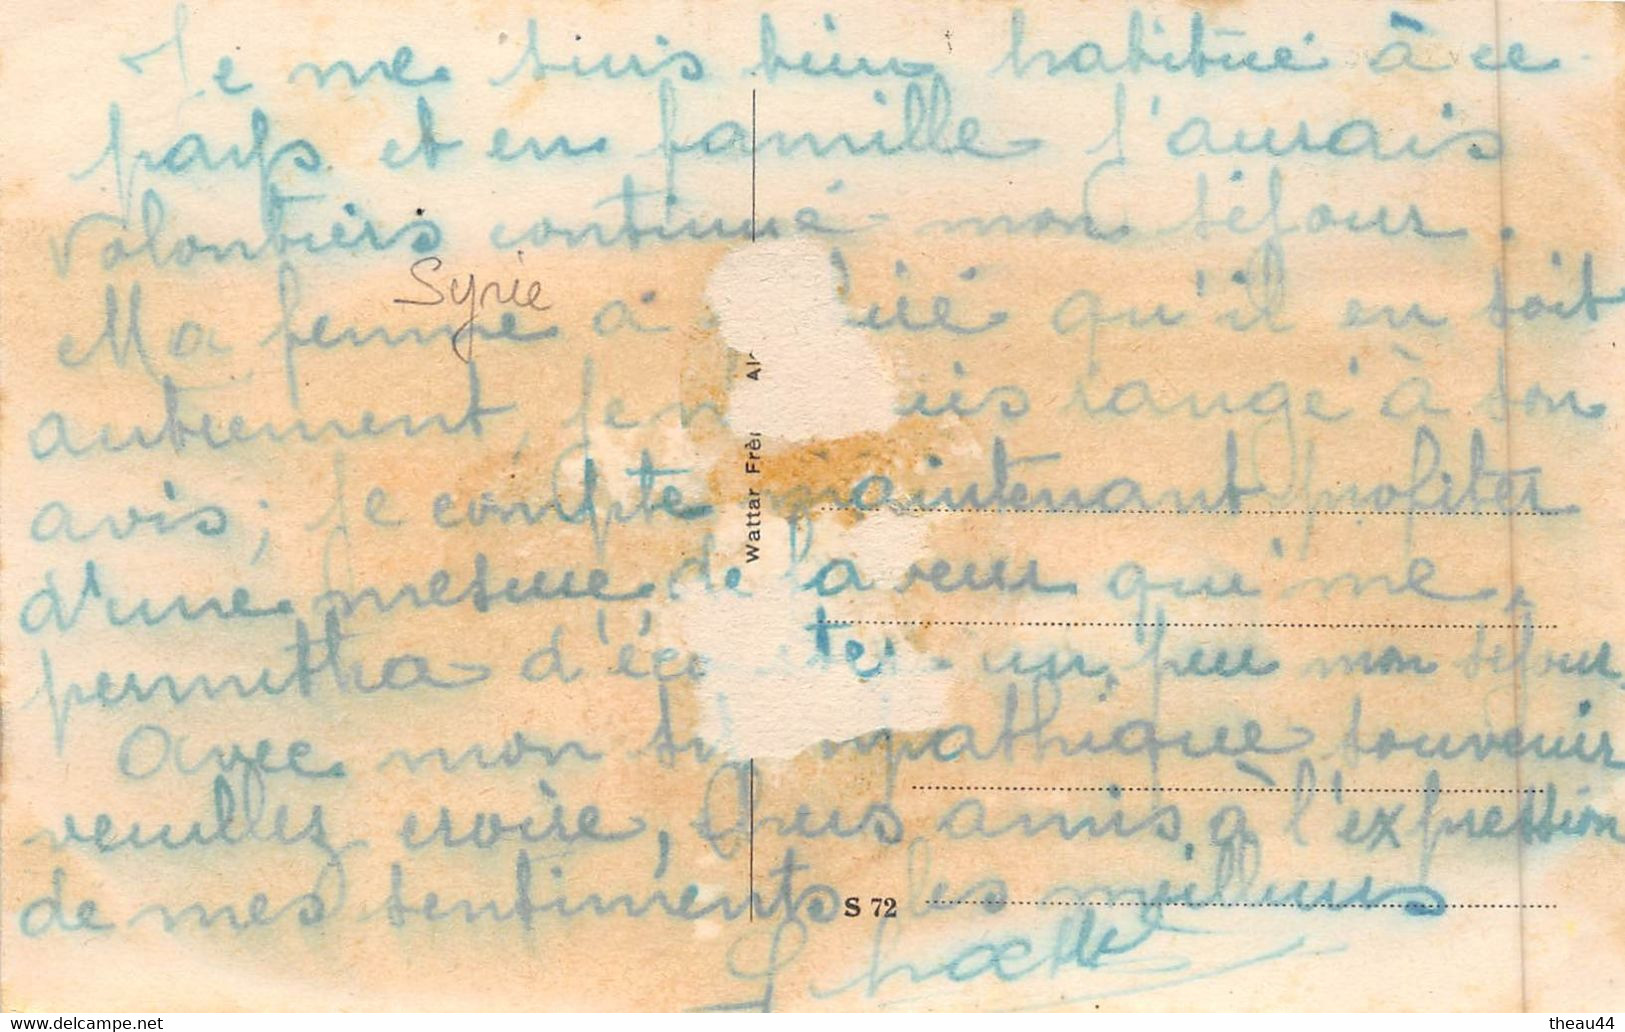 Je me suis bien habitué à ce
pays et en famille j'aurais
volontiers continué mon séjour.
Syrie
Ma femme a qu'il en soit
autrement, je suis rangé à son
avis; je compte maintenant profiter
d'une mesure de faveur qui me
permettra d' un peu mon séjour.
Avec mon sympathique souvenir
veuillez croire, Chers amis, à l'expression
de mes sentiments les meilleurs
Wattar Frèr
S 72
www.delcampe.net
theau44